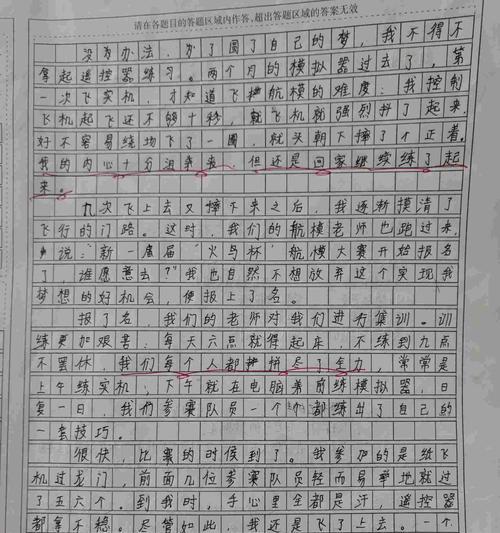 请在各题目的答题区域内作答,超出答题区域的答案无效
没有办法,为了圆了自己的梦,我不得不
拿起遥控器练习。两个月的模拟器过去了,第
一次飞实机,才知道飞航模的难度:我控制
飞机起飞还不够十秒,就飞机就强烈抖了起来
好不容易绕场飞了一圈,就头朝下摔了个正着。
我的内心十分沮丧,但还是回家继续练了起
来。
九次飞上去又摔下来之后,我逐渐摸清了
飞行的门路。这时,我们的航模老师也跑过来,
说:“新一届届“火鸟杯”航模大赛开始报名
了,谁愿意去?”我也自然不想放弃这个实现我
梦想的好机会,便报上了名。
报了名,我们的老师对我们进行集训。训
练更加艰害:每天六点就得起床,不练到九点
不罢休,我们每个人都拼尽了全力,常常是
上午练实机,下午就在电脑前练模拟器,日
复一日,我们参赛队员一个个都练出了自己的
一套技巧。
很快,比赛的时候到了。我参加的是纸飞
机过龙门,前面几位参赛队员轻而易举地就过
了五六个。到我时,手心里全都是汗,遥控器
都拿不稳。尽管如此,我还是飞了上去。一个